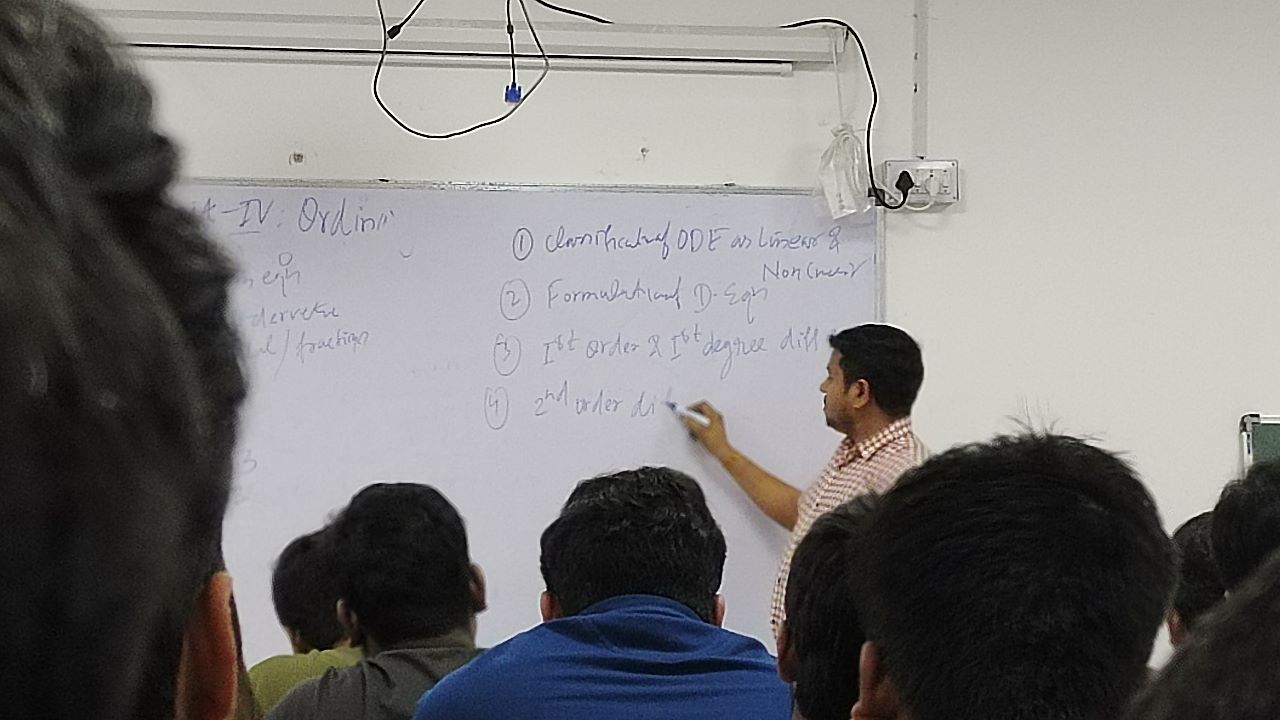 -IV: Ordin
eqn
/fraction
① Classification of ODE as Linear &
Nonlinear
② Formulation of D. Eqn
③ Ist Order & Ist degree diff
④ 2nd order di